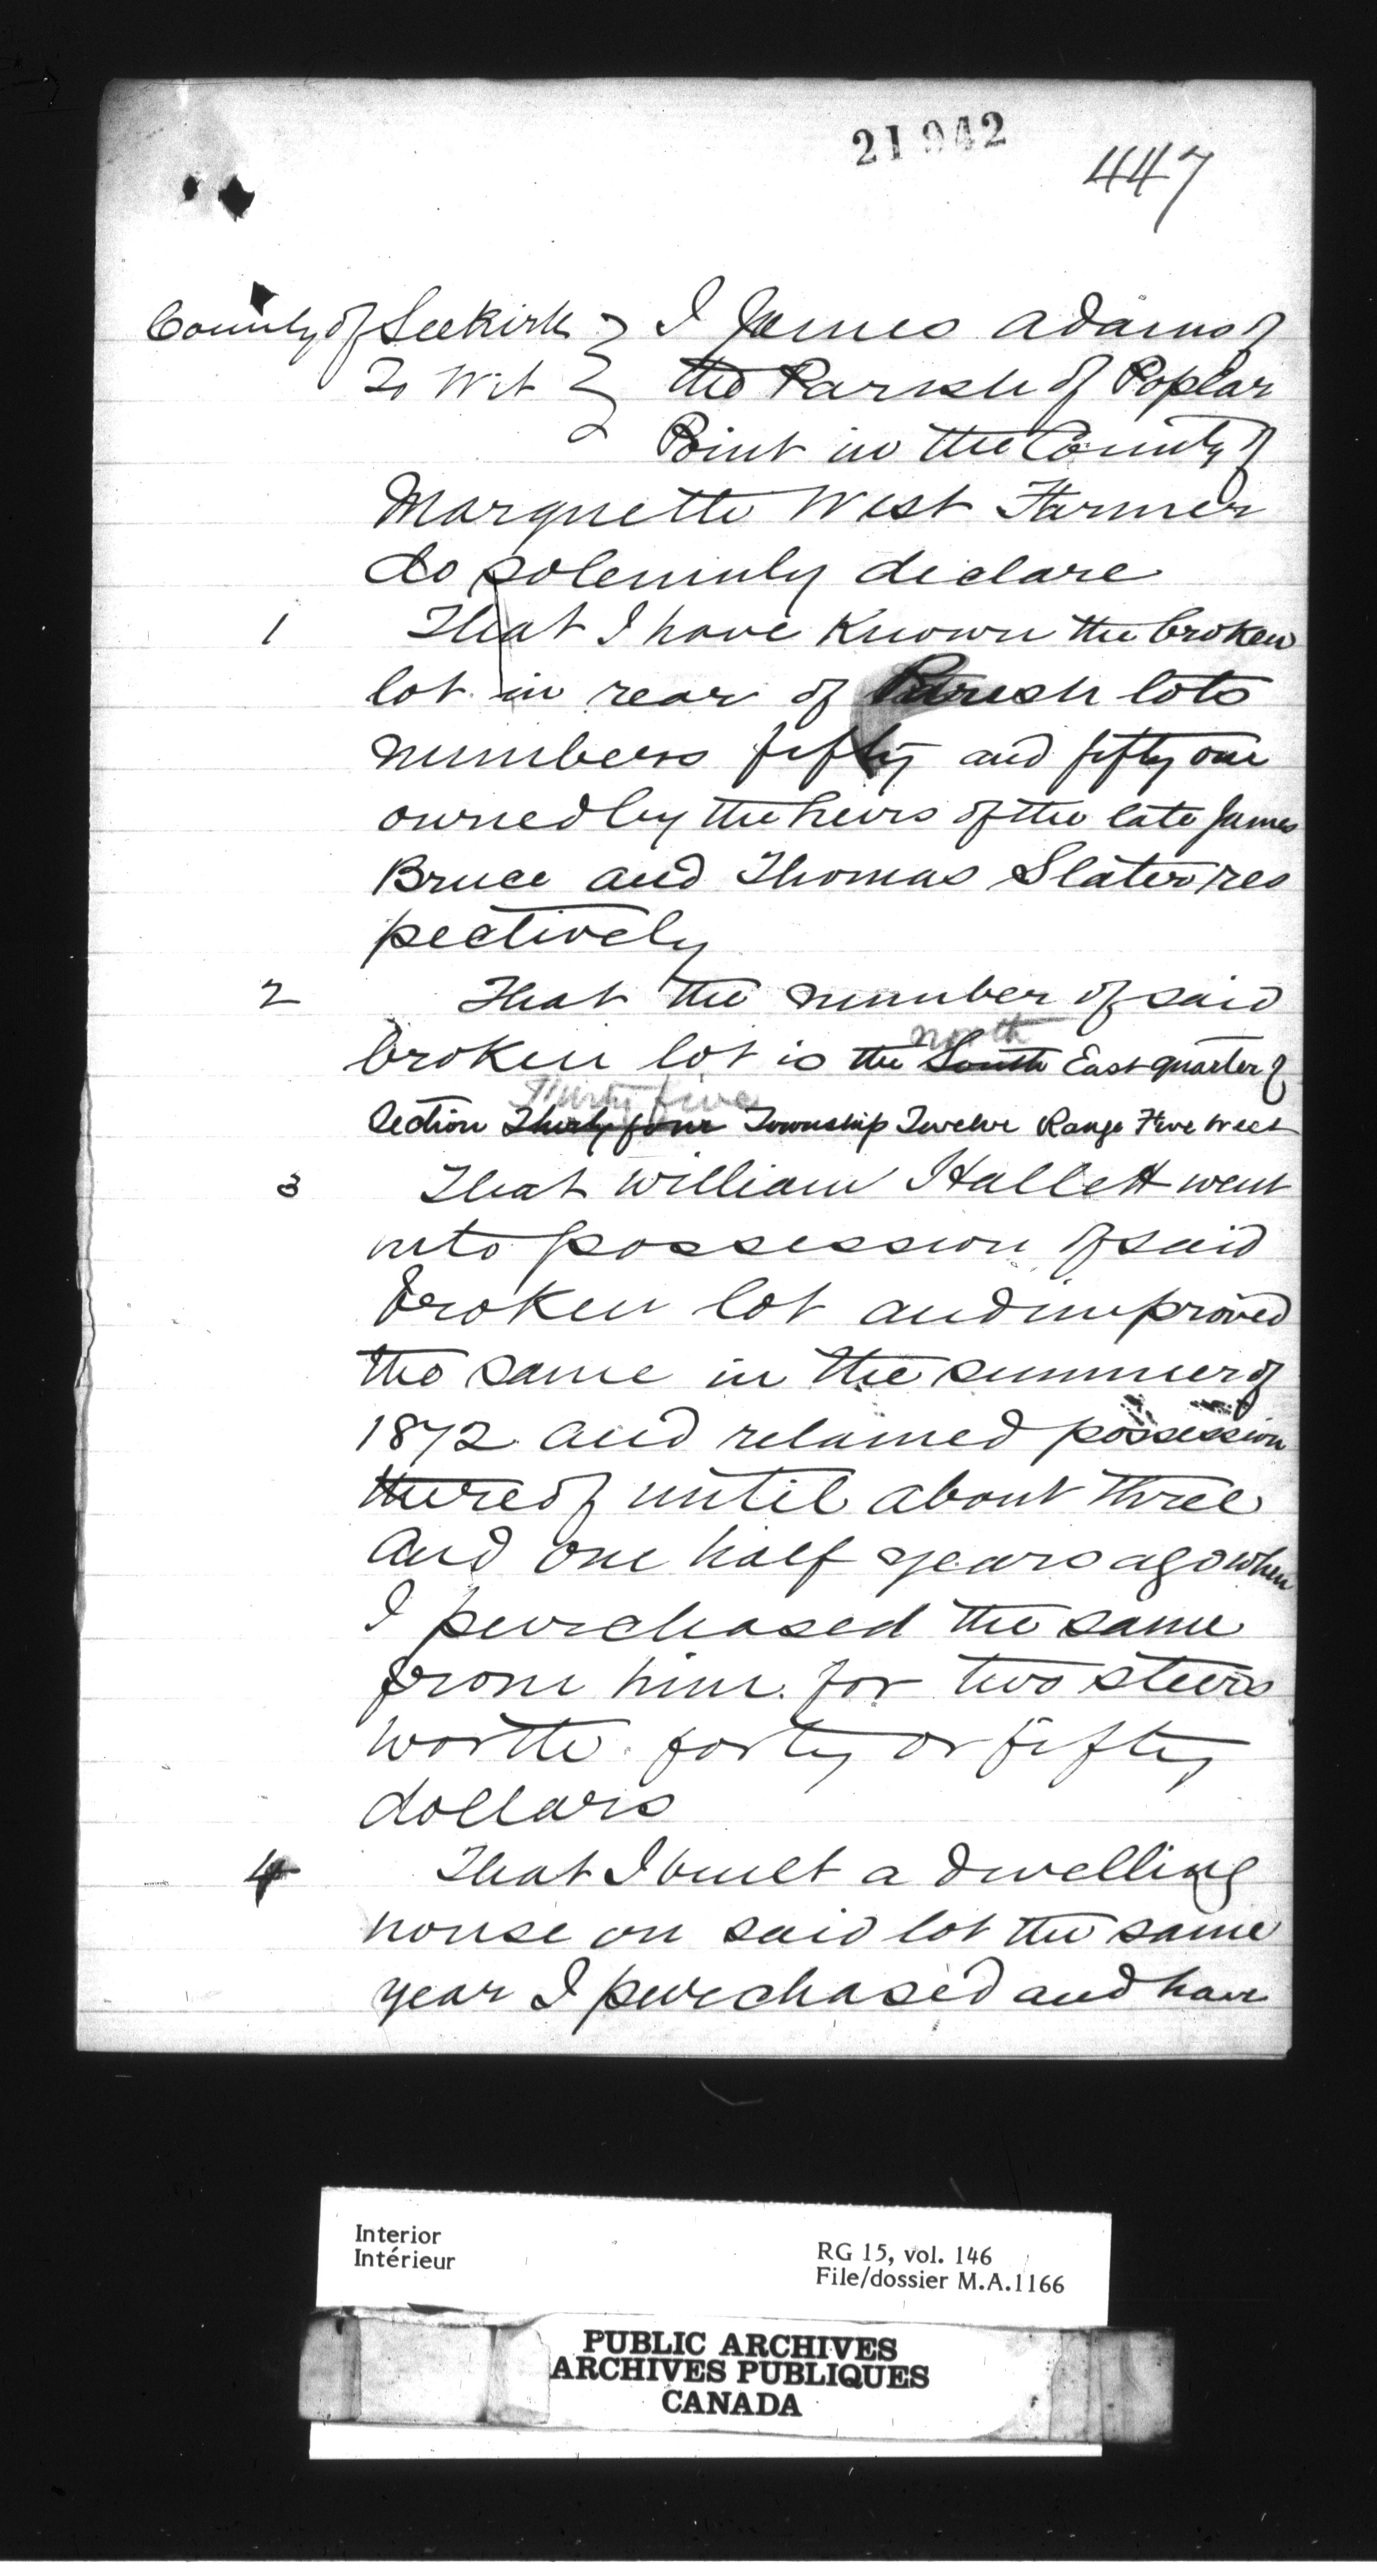 21942
447
County of Selkirk } I James Adams of
To Wit } the Parish of Poplar
Point in the County of
Marquette West Farmer
do solemnly declare
1 That I have known the broken
lot in rear of Parish lots
numbers fifty and fifty one
owned by the heirs of the late James
Bruce and Thomas Slater res
pectively
2 That the number of said
north
broken lot is the South East quarter of
Thirty five
Section Thirty four Township Twelve Range Five West
3 That William Hallett went
into possession of said
broken lot and improved
the same in the summer of
1872 and retained possession
thereof until about three
and one half years ago when
I purchased the same
from him for two steers
worth forty or fifty
dollars
4 That I built a dwelling
house on said lot the same
year I purchased and have
Interior
Intérieur
RG 15, vol. 146
File/dossier M.A.1166
PUBLIC ARCHIVES
ARCHIVES PUBLIQUES
CANADA